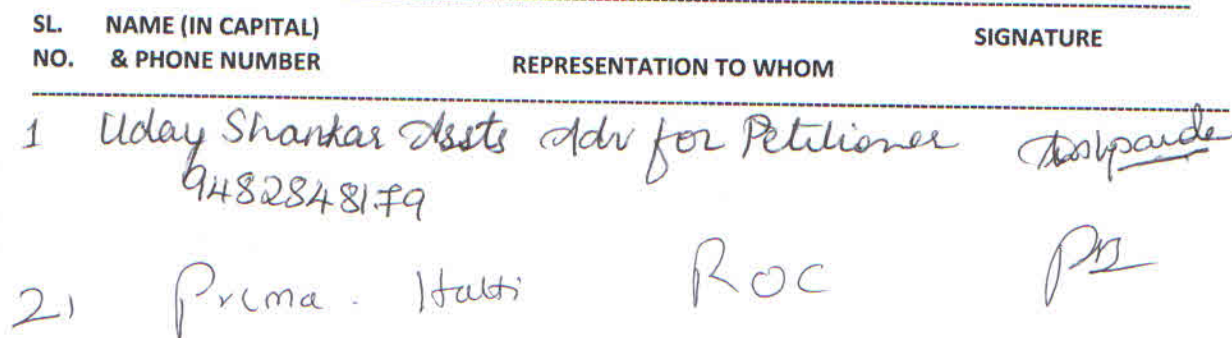 SL. NAME (IN CAPITAL) SIGNATURE
NO. & PHONE NUMBER REPRESENTATION TO WHOM
1 Uday Shankar Assts Adv for Petitioner
9482848179
2) Prema. Hatti ROC